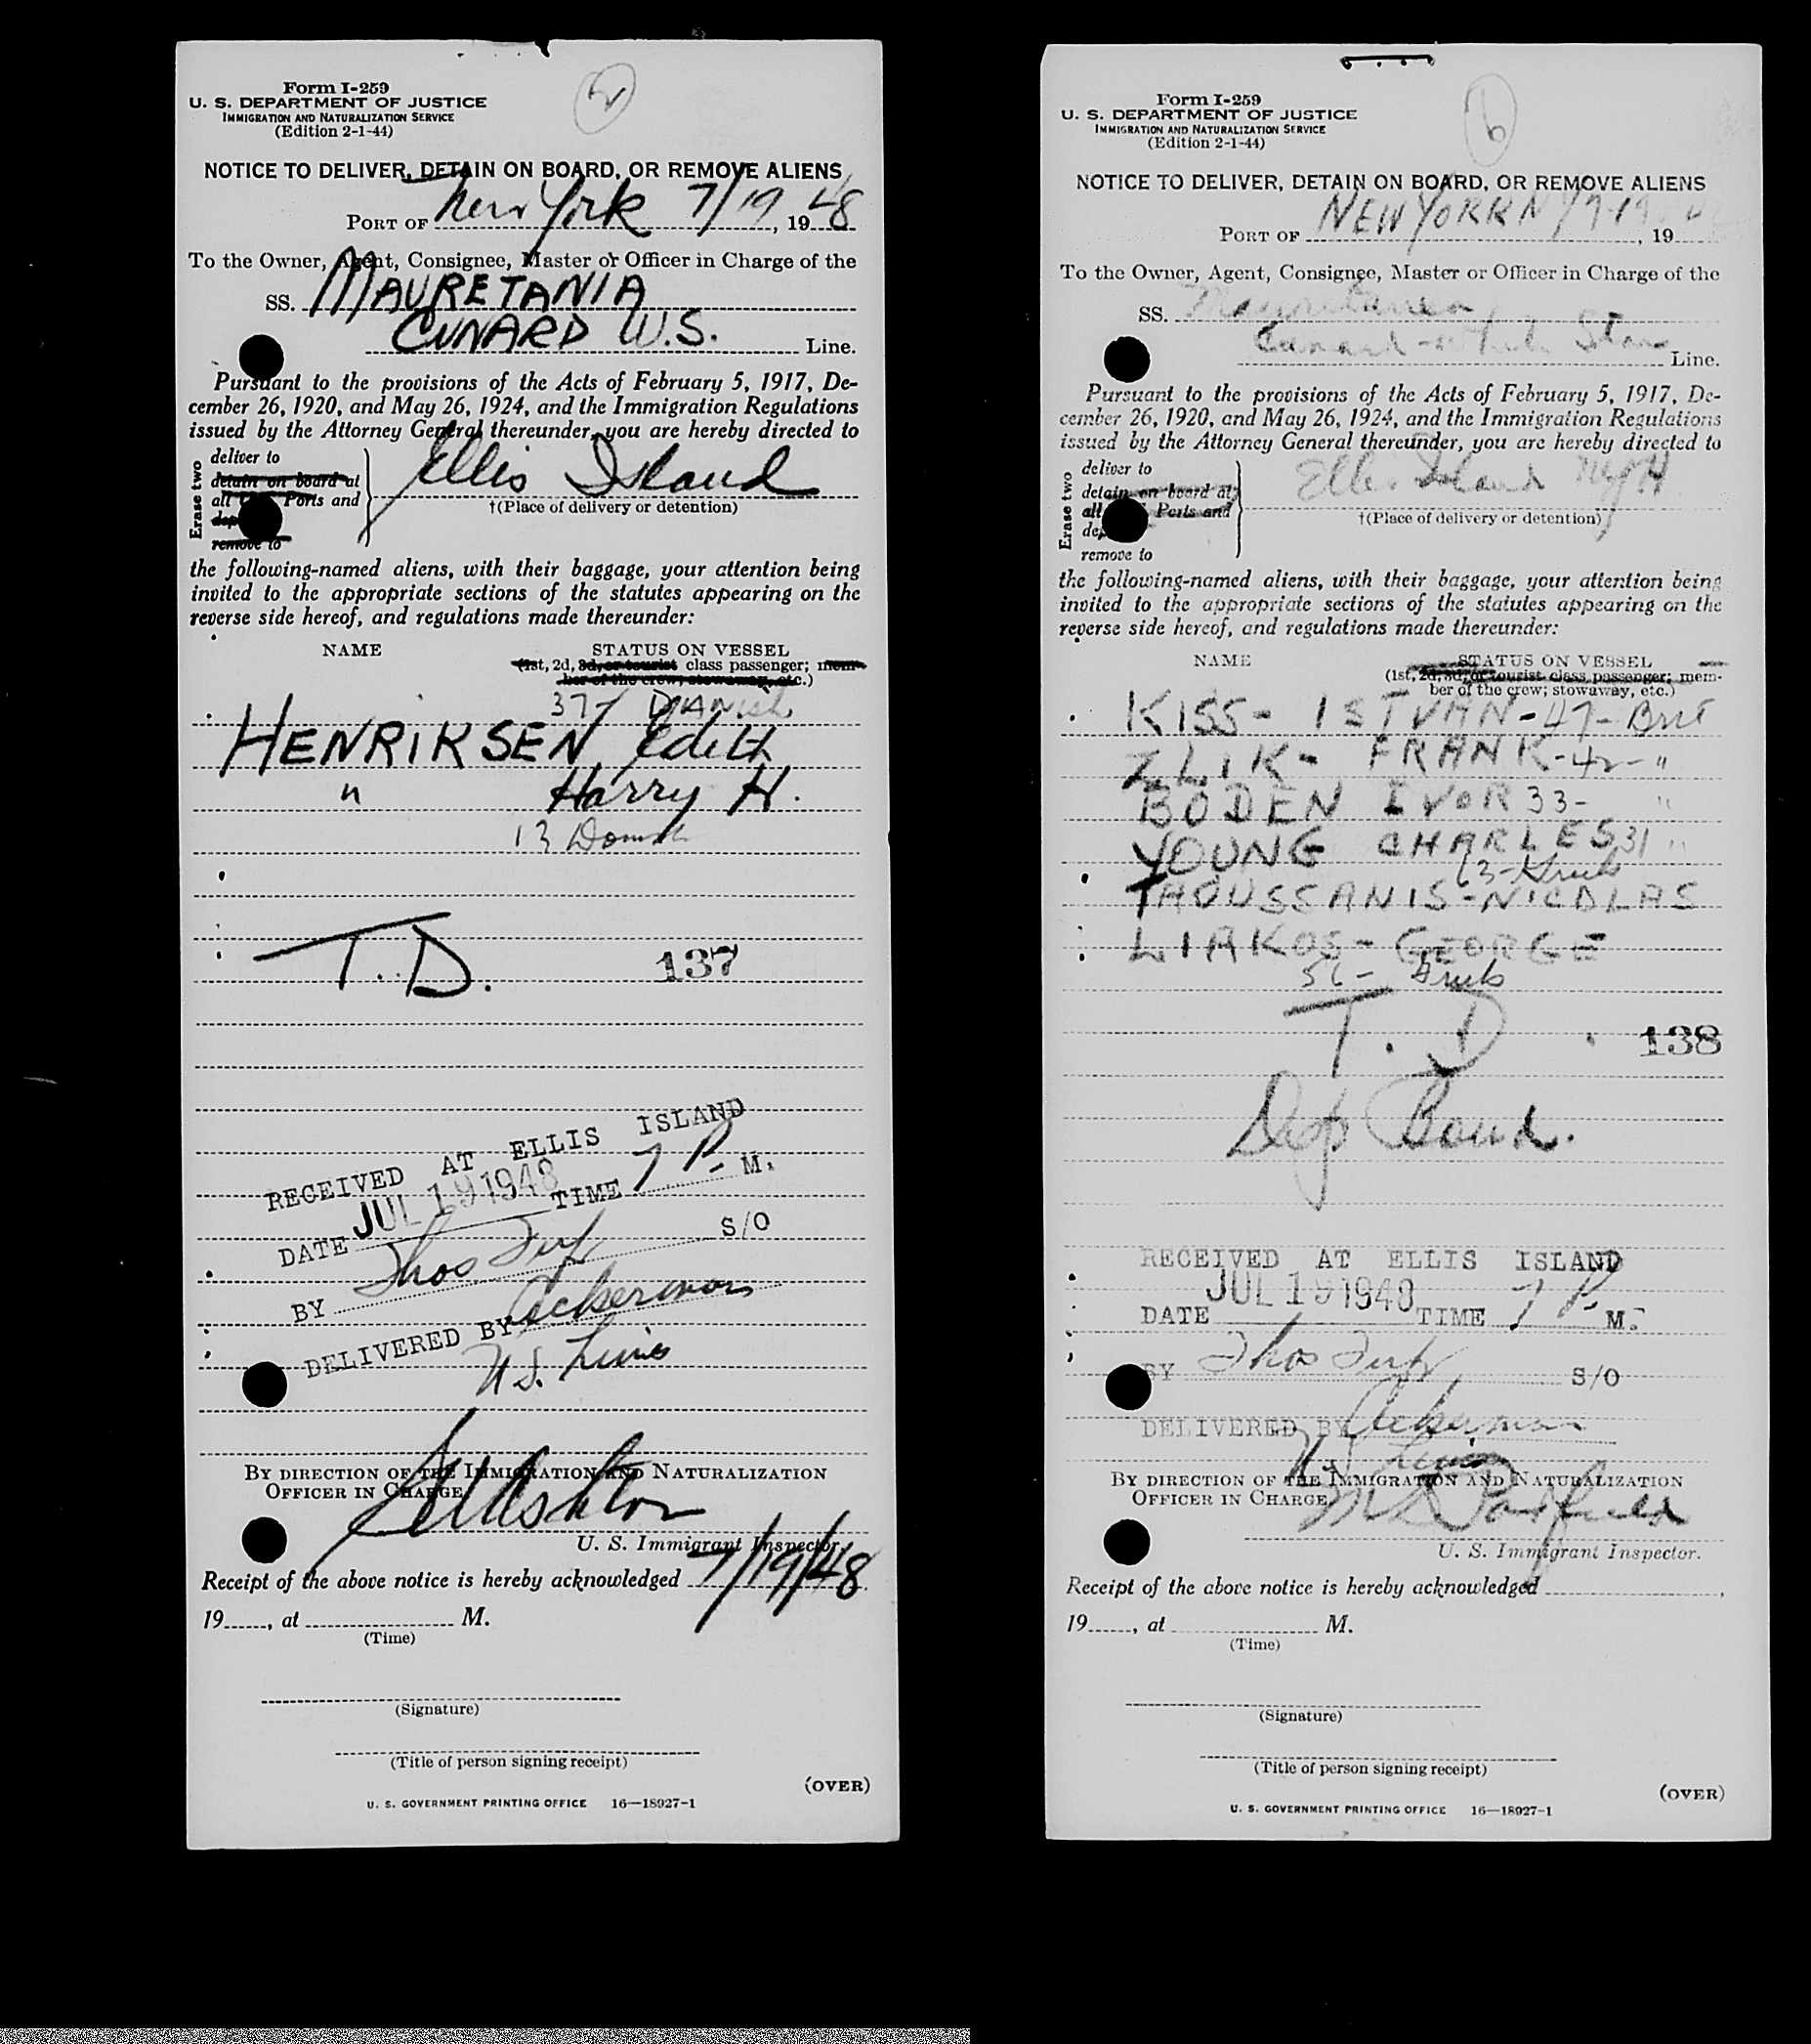 2
Form I-259
U. S. DEPARTMENT OF JUSTICE
IMMIGRATION AND NATURALIZATION SERVICE
(Edition 2-1-44)
NOTICE TO DELIVER, DETAIN ON BOARD, OR REMOVE ALIENS
PORT OF New York 7/19, 1948
To the Owner, Agent, Consignee, Master or Officer in Charge of the
SS. MAURETANIA
CUNARD W.S. Line.
Pursuant to the provisions of the Acts of February 5, 1917, De-
cember 26, 1920, and May 26, 1924, and the Immigration Regulations
issued by the Attorney General thereunder, you are hereby directed to
Erase two
deliver to
detain on board at
all Ports and
dep
remove to
Ellis Island
†(Place of delivery or detention)
the following-named aliens, with their baggage, your attention being
invited to the appropriate sections of the statutes appearing on the
reverse side hereof, and regulations made thereunder:
NAME STATUS ON VESSEL
(1st, 2d, 3d, or tourist class passenger; mem-
ber of the crew; stowaway, etc.)
37 Danish
HENRIKSEN Edith
" Harry H.
13 Danish
T.D. 137
RECEIVED AT ELLIS ISLAND
DATE JUL 19 1948 TIME 7 P. M.
BY Thos S/O
DELIVERED BY Ackerman
U.S. Lines
BY DIRECTION OF THE IMMIGRATION AND NATURALIZATION
OFFICER IN CHARGE
Ashton
U. S. Immigrant Inspector.
Receipt of the above notice is hereby acknowledged 7/19/48
19, at M.
(Time)
(Signature)
(Title of person signing receipt)
(OVER)
U. S. GOVERNMENT PRINTING OFFICE 16—18927-1
6
Form I-259
U. S. DEPARTMENT OF JUSTICE
IMMIGRATION AND NATURALIZATION SERVICE
(Edition 2-1-44)
NOTICE TO DELIVER, DETAIN ON BOARD, OR REMOVE ALIENS
PORT OF NEW YORK N Y 7-19, 19
To the Owner, Agent, Consignee, Master or Officer in Charge of the
SS. Mauritania
Cunard White Star Line.
Pursuant to the provisions of the Acts of February 5, 1917, De-
cember 26, 1920, and May 26, 1924, and the Immigration Regulations
issued by the Attorney General thereunder, you are hereby directed to
Erase two
deliver to
detain on board at
all Ports and
dep
remove to
Ellis Island NYH
†(Place of delivery or detention)
the following-named aliens, with their baggage, your attention being
invited to the appropriate sections of the statutes appearing on the
reverse side hereof, and regulations made thereunder:
NAME STATUS ON VESSEL
(1st, 2d, 3d, or tourist class passenger; mem-
ber of the crew; stowaway, etc.)
KISS - ISTVAN - 47 - Brit
ZLIK - FRANK - 42 - "
BODEN IVOR 33 - "
YOUNG CHARLES 31 "
63 - Greek
TAOUSSANIS - NICOLAS
LIAKOS - GEORGE
56 - Greek
T. D. 138
Dep Bound.
RECEIVED AT ELLIS ISLAND
DATE JUL 19 1948 TIME 7 P. M.
BY Thos S/O
DELIVERED BY Ackerman
U.S. Lines
BY DIRECTION OF THE IMMIGRATION AND NATURALIZATION
OFFICER IN CHARGE,
U. S. Immigrant Inspector.
Receipt of the above notice is hereby acknowledged,
19, at M.
(Time)
(Signature)
(Title of person signing receipt)
(OVER)
U. S. GOVERNMENT PRINTING OFFICE 16—18927-1